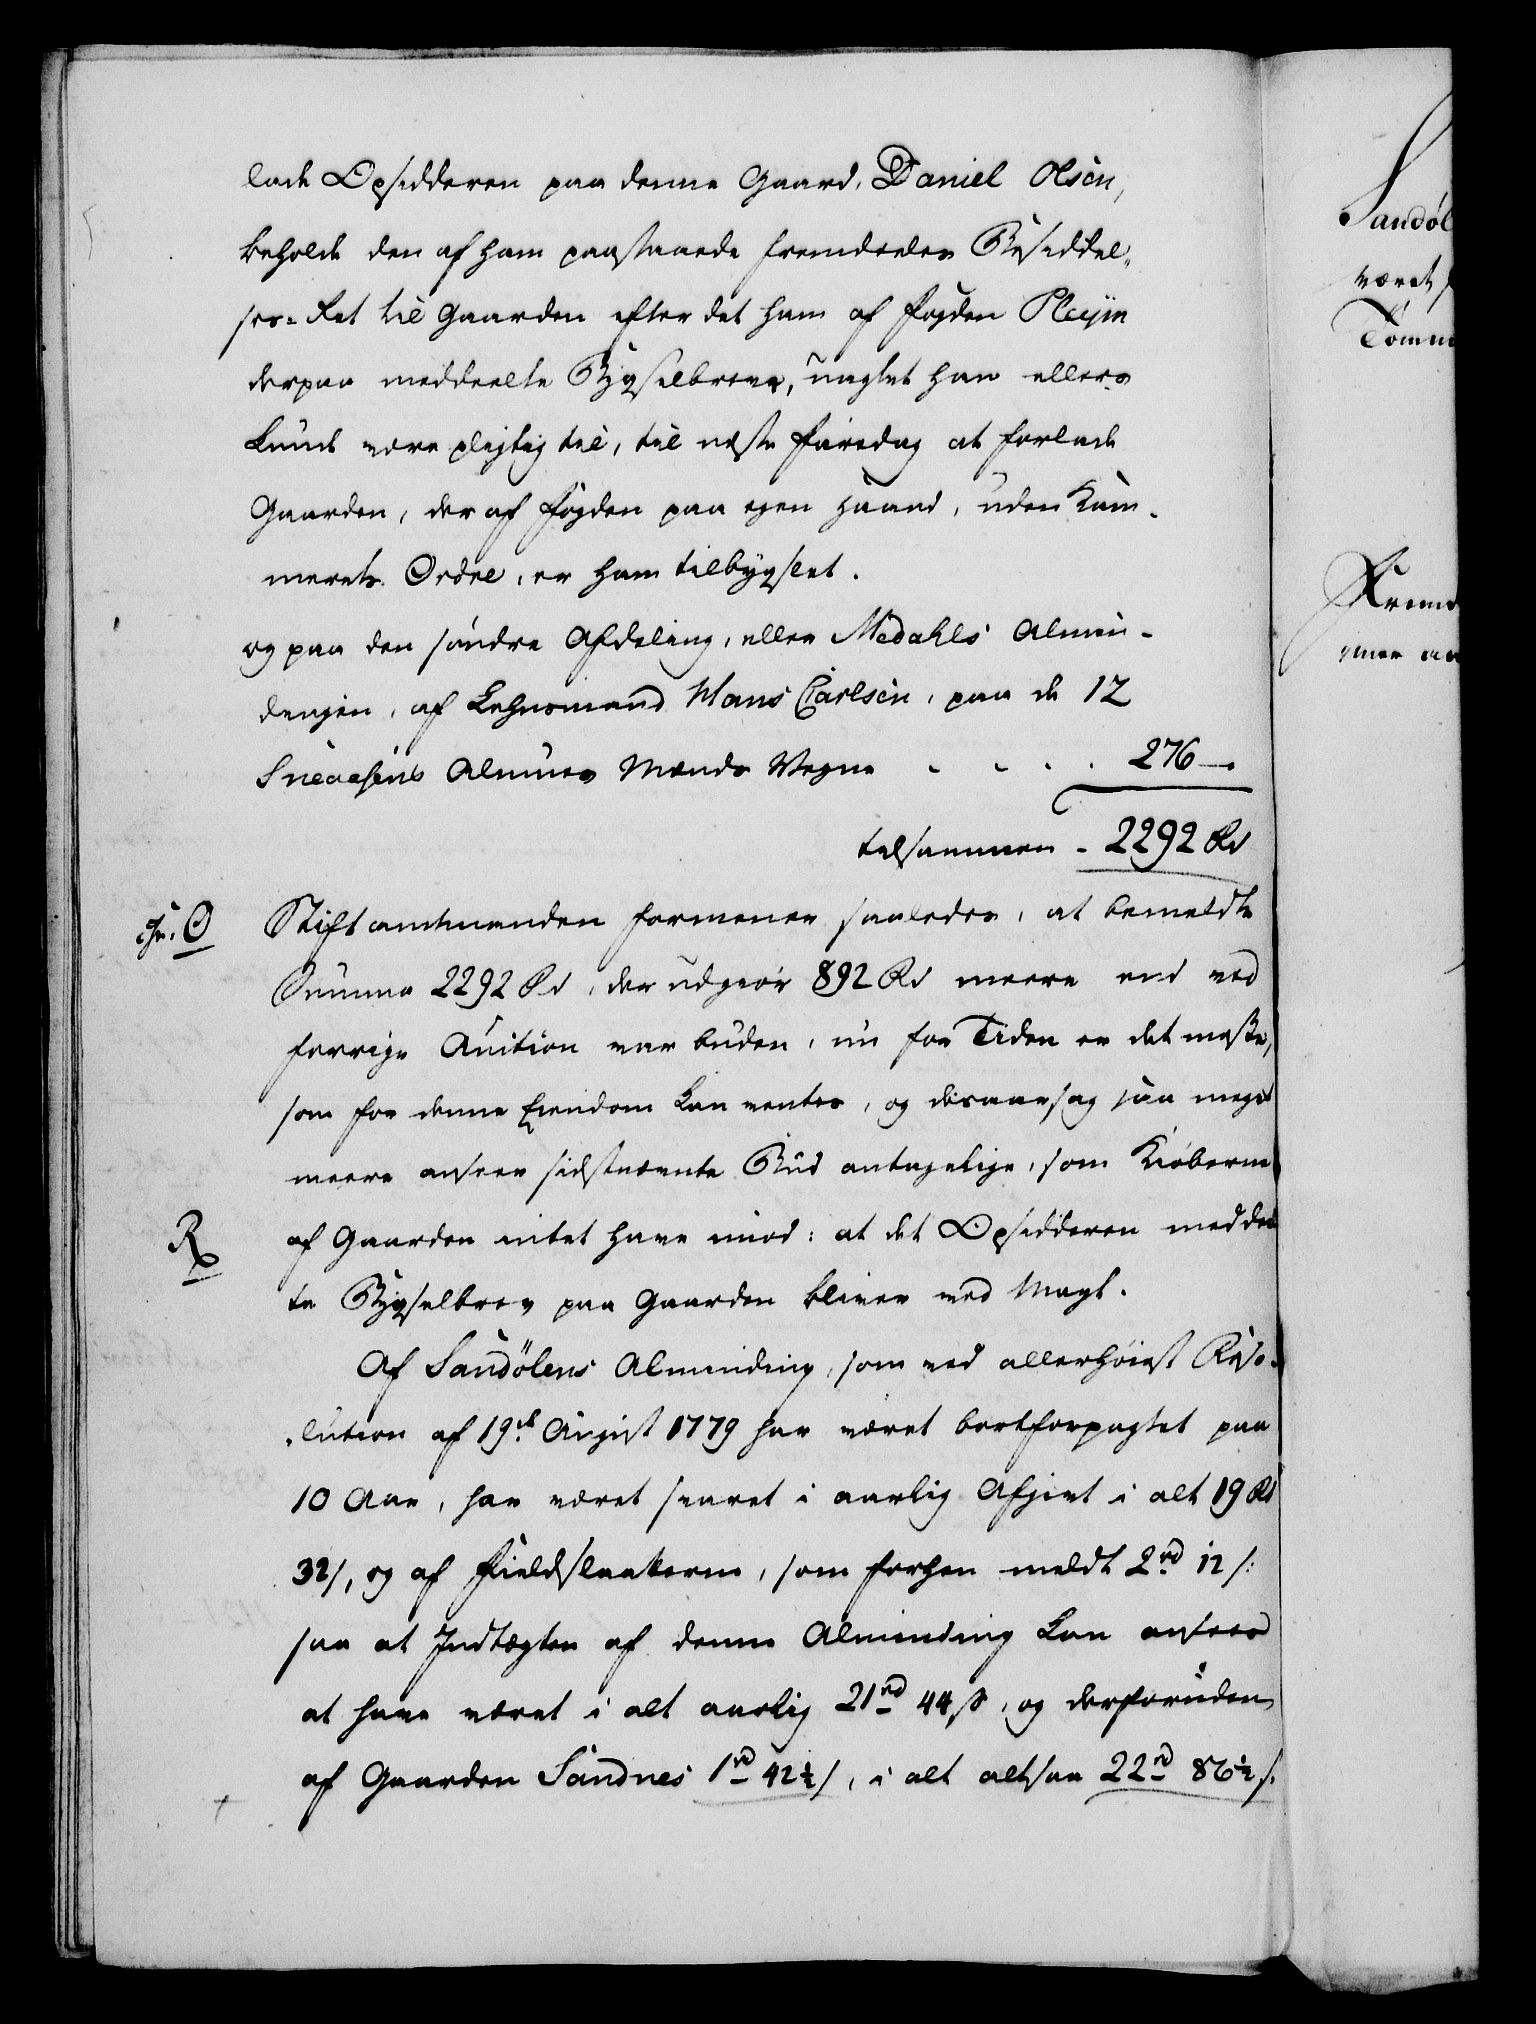 lade Opsidderen paa denne Gaard, Daniel Olsen,
beholde den af ham paastaaede fremdeeles Besiddel„
ses-Ret til Gaarden efter det ham af Fogden Pleijm
derpaa meddeelte Bygselbrev, uagtet han ellers
kunde være pligtig til, til næste Faredag at forlade
Gaarden, der af Fogden paa egen Haand, uden Kam-
merets Ordre, er ham tilbygslet.
og paa den søndre Afdeling, eller Medahls Almin-
dingen, af Lehnsmand Hans Carlsen, paa de 12
Sneaasens Almues Mænds Vegne - - - - 276 -.
tilsammen - 2292 Rd
Stiftamtmanden formener saaledes, at bemeldte
Summa 2292 Rd, der udgiør 892 Rd meere end ved
forrige Auction var buden, nu for Tiden er det meste,
som for denne Eiendom kan ventes, og desaarsag saa meget
meere anseer sidstnævnte Bud antagelige, som Kiøberne
af Gaarden intet have imod: at det Opsidderen meddeel
te Bygselbrev paa Gaarden bliver ved Magt.
Af Sandølens Alminding, som ved allerhøiest Reso-
„lution af 19de August 1779 har været bortforpagtet paa
10 Aar, har været svaret i aarlig Afgivt i alt 19 Rd
32 s, og af Fieldslaatterne, som forhen meldt 2rd 12 s:
saa at Indtægten af denne Alminding kan ansees
at have været i alt aarlig 21rd 44 s, og derforuden
af Gaarden Sandnes 1rd 42½ s, i alt altsaa 22rd 86½ s.
Sandøl
været
Tømm